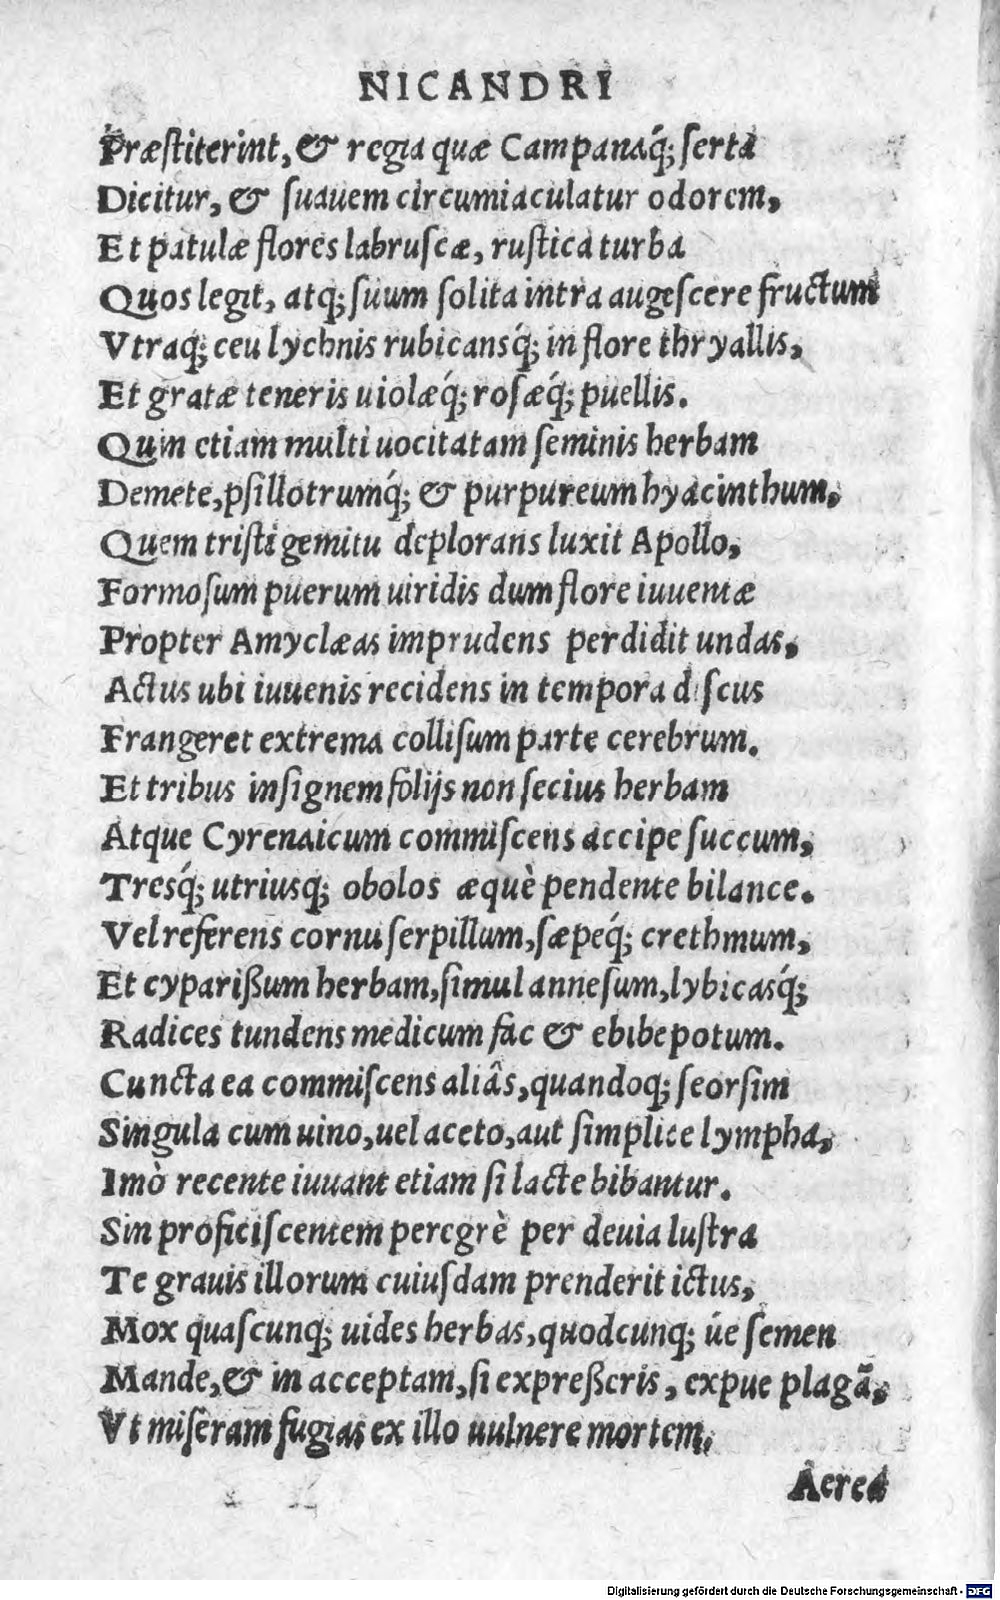 NICANDRI
Præſtiterint, & regia quæ Campanaq́; ſerta
Dicitur, & ſuauem circumiaculatur odorem,
Et patulæ flores labruſcæ, ruſtica turba
Quos legit, atq; ſuum ſolita intra augeſcere fructum
Vtraq; ceu lychnis rubicansq́; in flore thryallis,
Et gratæ teneris uiolæq́; roſæq́; puellis.
Quin etiam multi uocitatam ſeminis herbam
Demete, pſillotrumq́; & purpureum hyacinthum,
Quem triſti gemitu deplorans luxit Apollo,
Formoſum puerum uiridis dum flore iuuentæ
Propter Amyclæas imprudens perdidit undas,
Actus ubi iuuenis recidens in tempora diſcus
Frangeret extrema colliſum parte cerebrum.
Et tribus inſignem folijs non ſecius herbam
Atque Cyrenaicum commiſcens accipe ſuccum,
Tresq́; utriusq; obolos æquè pendente bilance.
Vel referens cornu ſerpillum, ſæpeq́; crethmum,
Et cyparißum herbam, ſimul anneſum, lybicasq́;
Radices tundens medicum fac & ebibe potum.
Cuncta ea commiſcens aliâs, quandoq; ſeorſim
Singula cum uino, uel aceto, aut ſimplice lympha,
Imò recente iuuant etiam ſi lacte bibantur.
Sin proficiſcentem peregrè per deuia luſtra
Te grauis illorum cuiuſdam prenderit ictus,
Mox quaſcunq; uides herbas, quodcunq; úe ſemen
Mande, & in acceptam, ſi expreßeris, expue plagã,
Vt miſeram fugias ex illo uulnere mortem.
Aerea
Digitalisierung gefördert durch die Deutsche Forschungsgemeinschaft - DFG